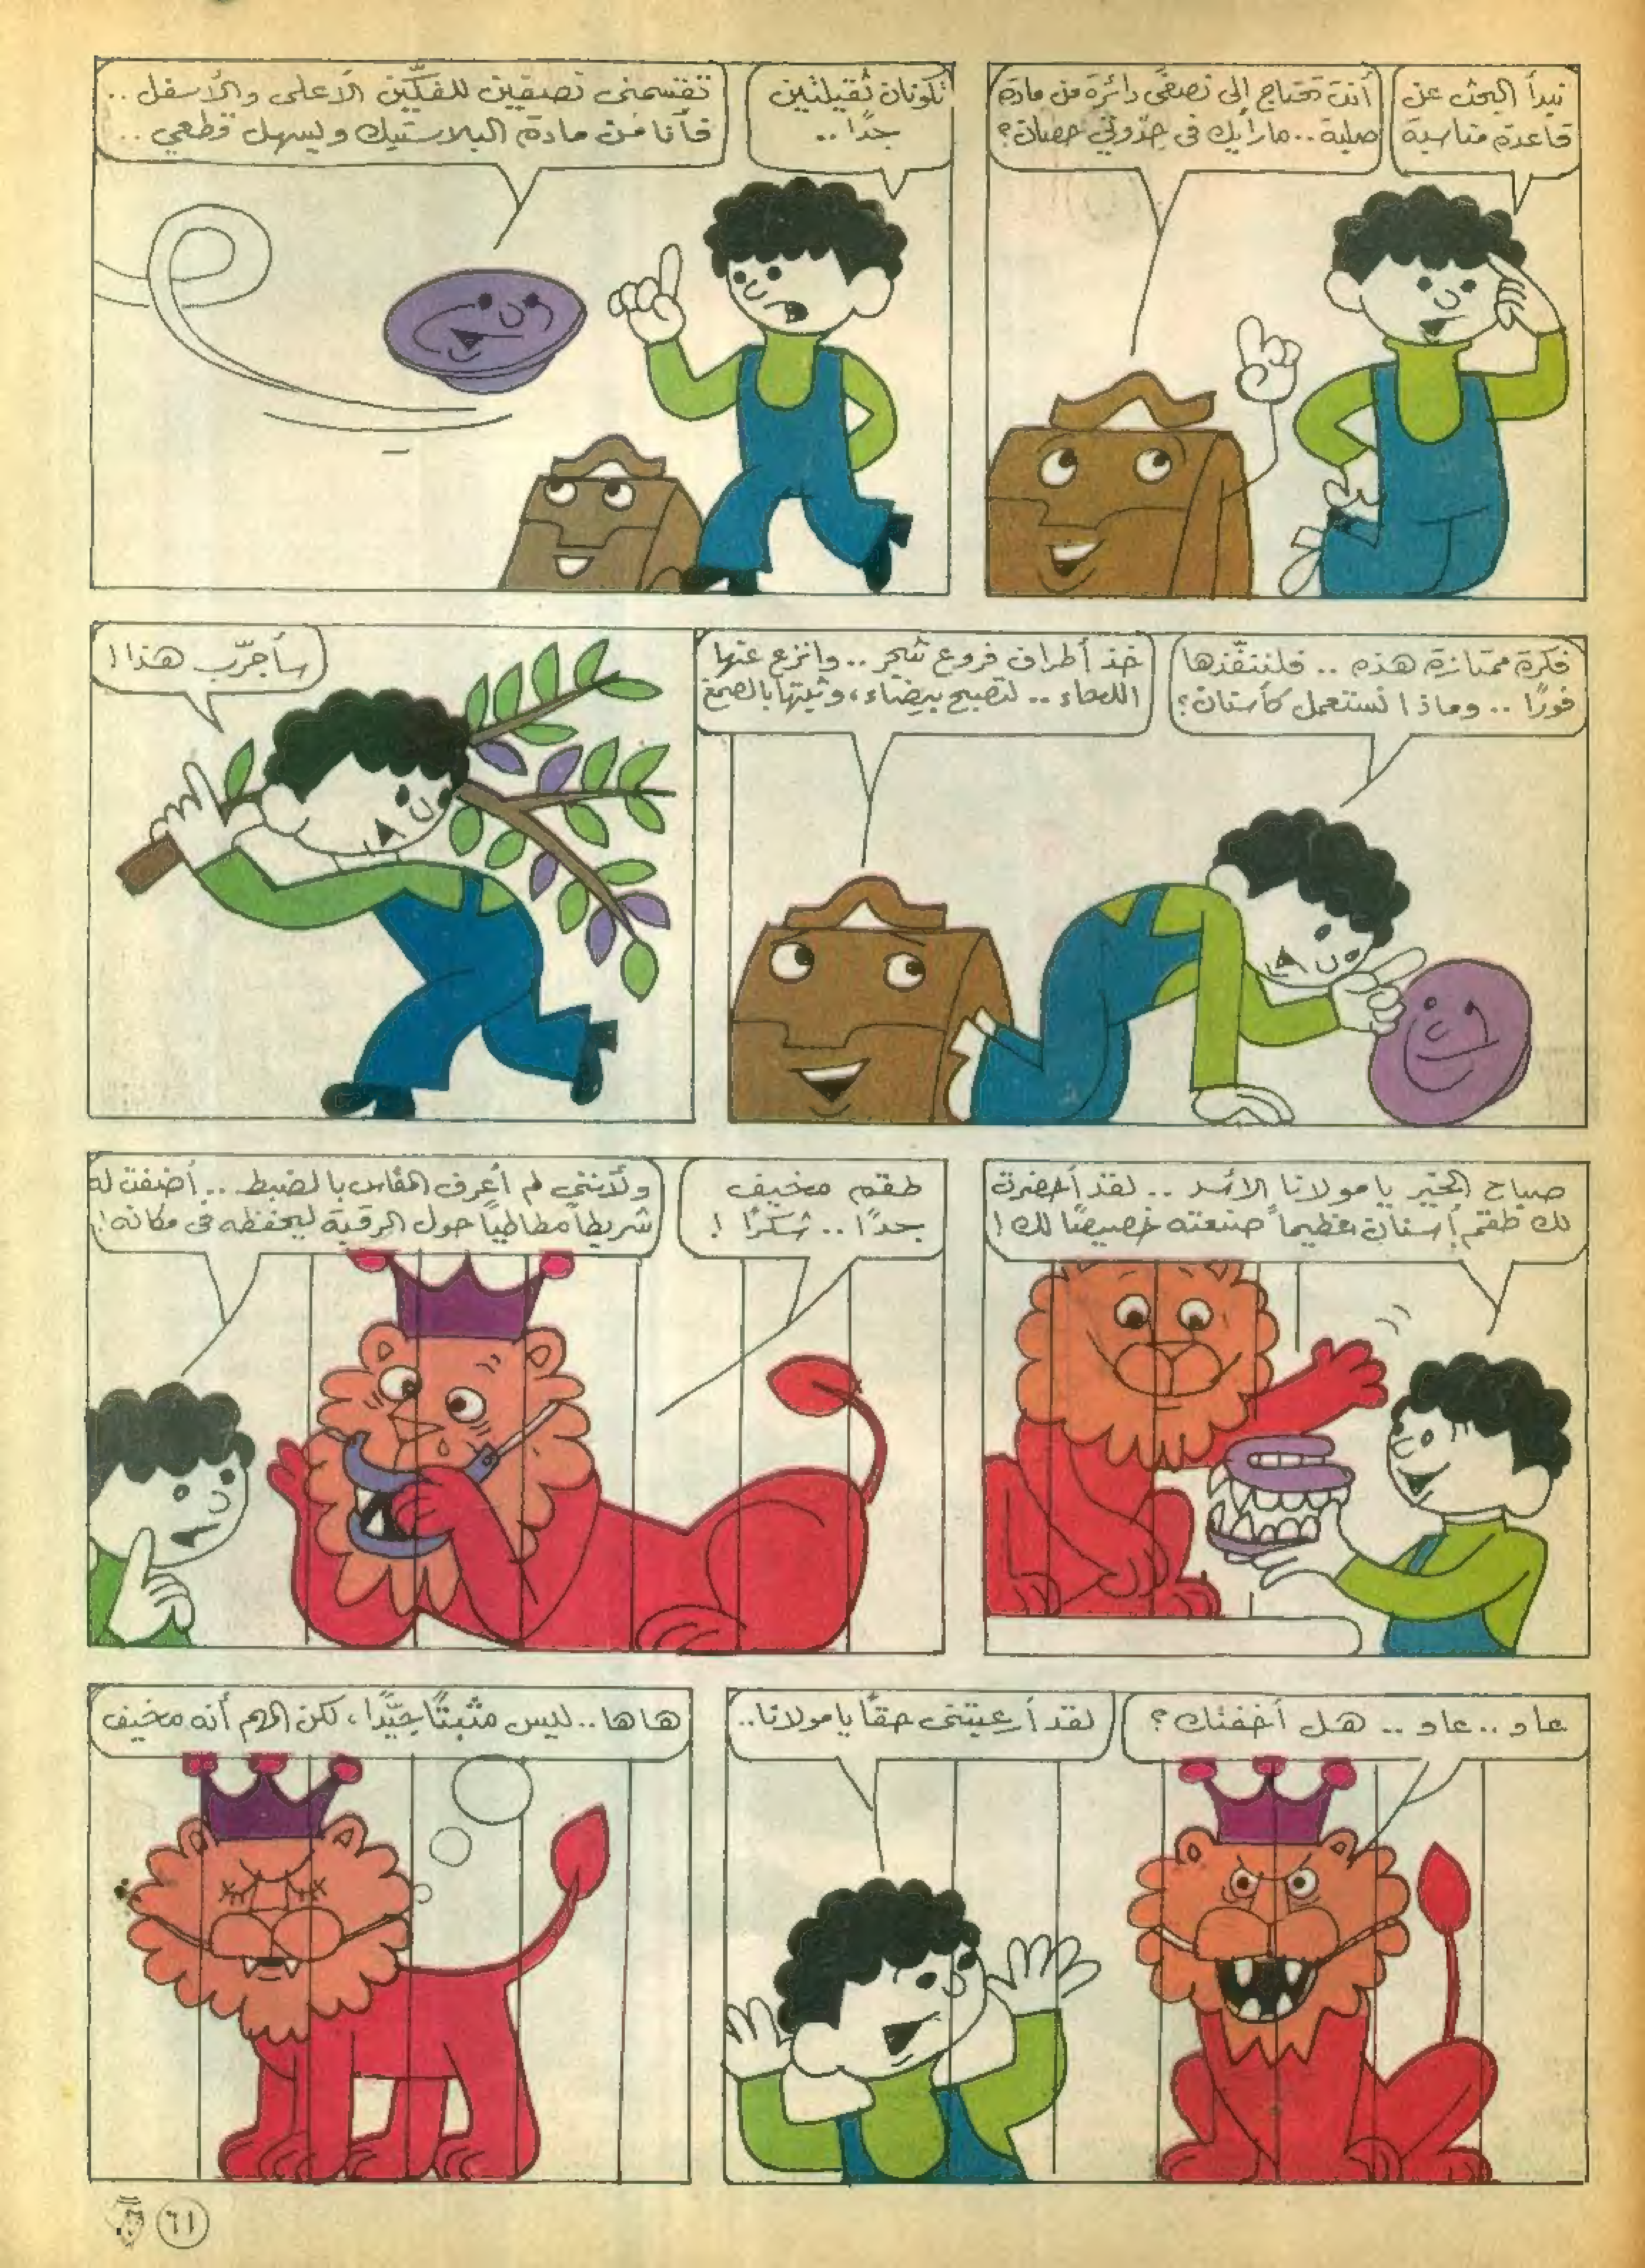 نبدأ البحث عن
قاعدة مناسبة
أنت تحتاج إلى نصفى دائرة من مادة
صلبة.. مارأيك فى حدوتي حصان؟
تكونان ثقيلتين
جدًا..
تقسمنى نصفين للفكّين الأعلى والأسفل..
فأنا من مادة البلاستيك ويسهل قطعي..
فكرة ممتازة هذه.. فلننفّذها
فورًا.. وماذا نستعمل كأسنان؟
خذ أطراف فروع شجر.. وانزع عنها
اللحاء.. لتصبح بيضاء، وثبتها بالصمغ
سأجرّب هذا!
صباح الخير يا مولانا الأسد.. لقد أحضرت
لك طقم أسنان عظيماً صنعته خصيصًا لك!
طقم مخيف
جدًا.. شكرًا!
ولأننى لم أعرف المقاس بالضبط.. أضفت له
شريطاً مطاطياً حول الرقبة ليحفظه فى مكانه!
عاو.. عاو.. هل أخفتك؟
لقد أرعبتنى حقًا يا مولانا..
هاها.. ليس مثبتًا جيّدًا، لكن المهم أنه مخيف
٦١